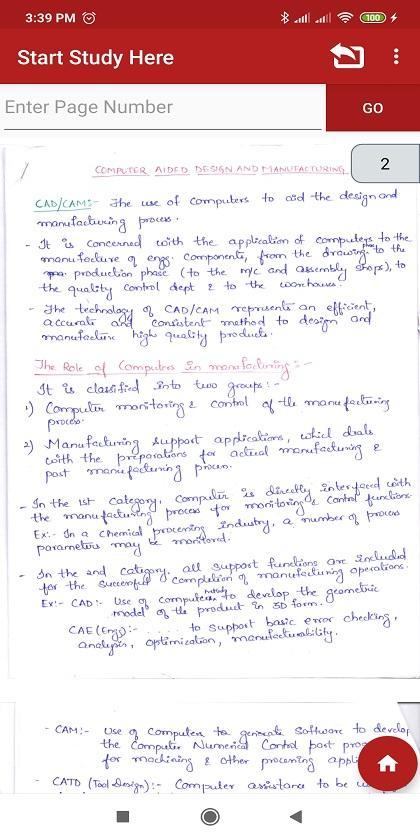 3:39 PM
100
Start Study Here
Enter Page Number
GO
2
COMPUTER AIDED DESIGN AND MANUFACTURING
CAD/CAM:- The use of computers to aid the design and
manufacturing process.
- It is concerned with the application of computers to the
manufacture of engg. components, from the drawing phase to the
production phase (to the m/c and assembly shops), to
the quality control dept & to the warehouse.
- The technology of CAD/CAM represents an efficient,
accurate and consistent method to design and
manufacture high quality products.
The Role of Computers in manufacturing:-
It is classified into two groups:-
1) Computer monitoring & control of the manufacturing
process.
2) Manufacturing support applications, which deals
with the preparations for actual manufacturing &
post manufacturing process.
- In the 1st category, Computer is directly interfaced with
the manufacturing process for monitoring & control functions.
Ex:- In a Chemical processing industry, a number of process
parameters may be monitored.
- In the 2nd category, all support functions are included
for the successful completion of manufacturing operations.
Ex:- CAD:- Use of computer to develop the geometric
model of the product in 3D form.
CAE (Engg):- to support basic error checking,
analysis, optimization, manufacturability.
- CAM:- Use of Computer to generate Software to develop
the Computer Numerical Control part
for machining & other processing
- CATD (Tool Design):- Computer assistance to be